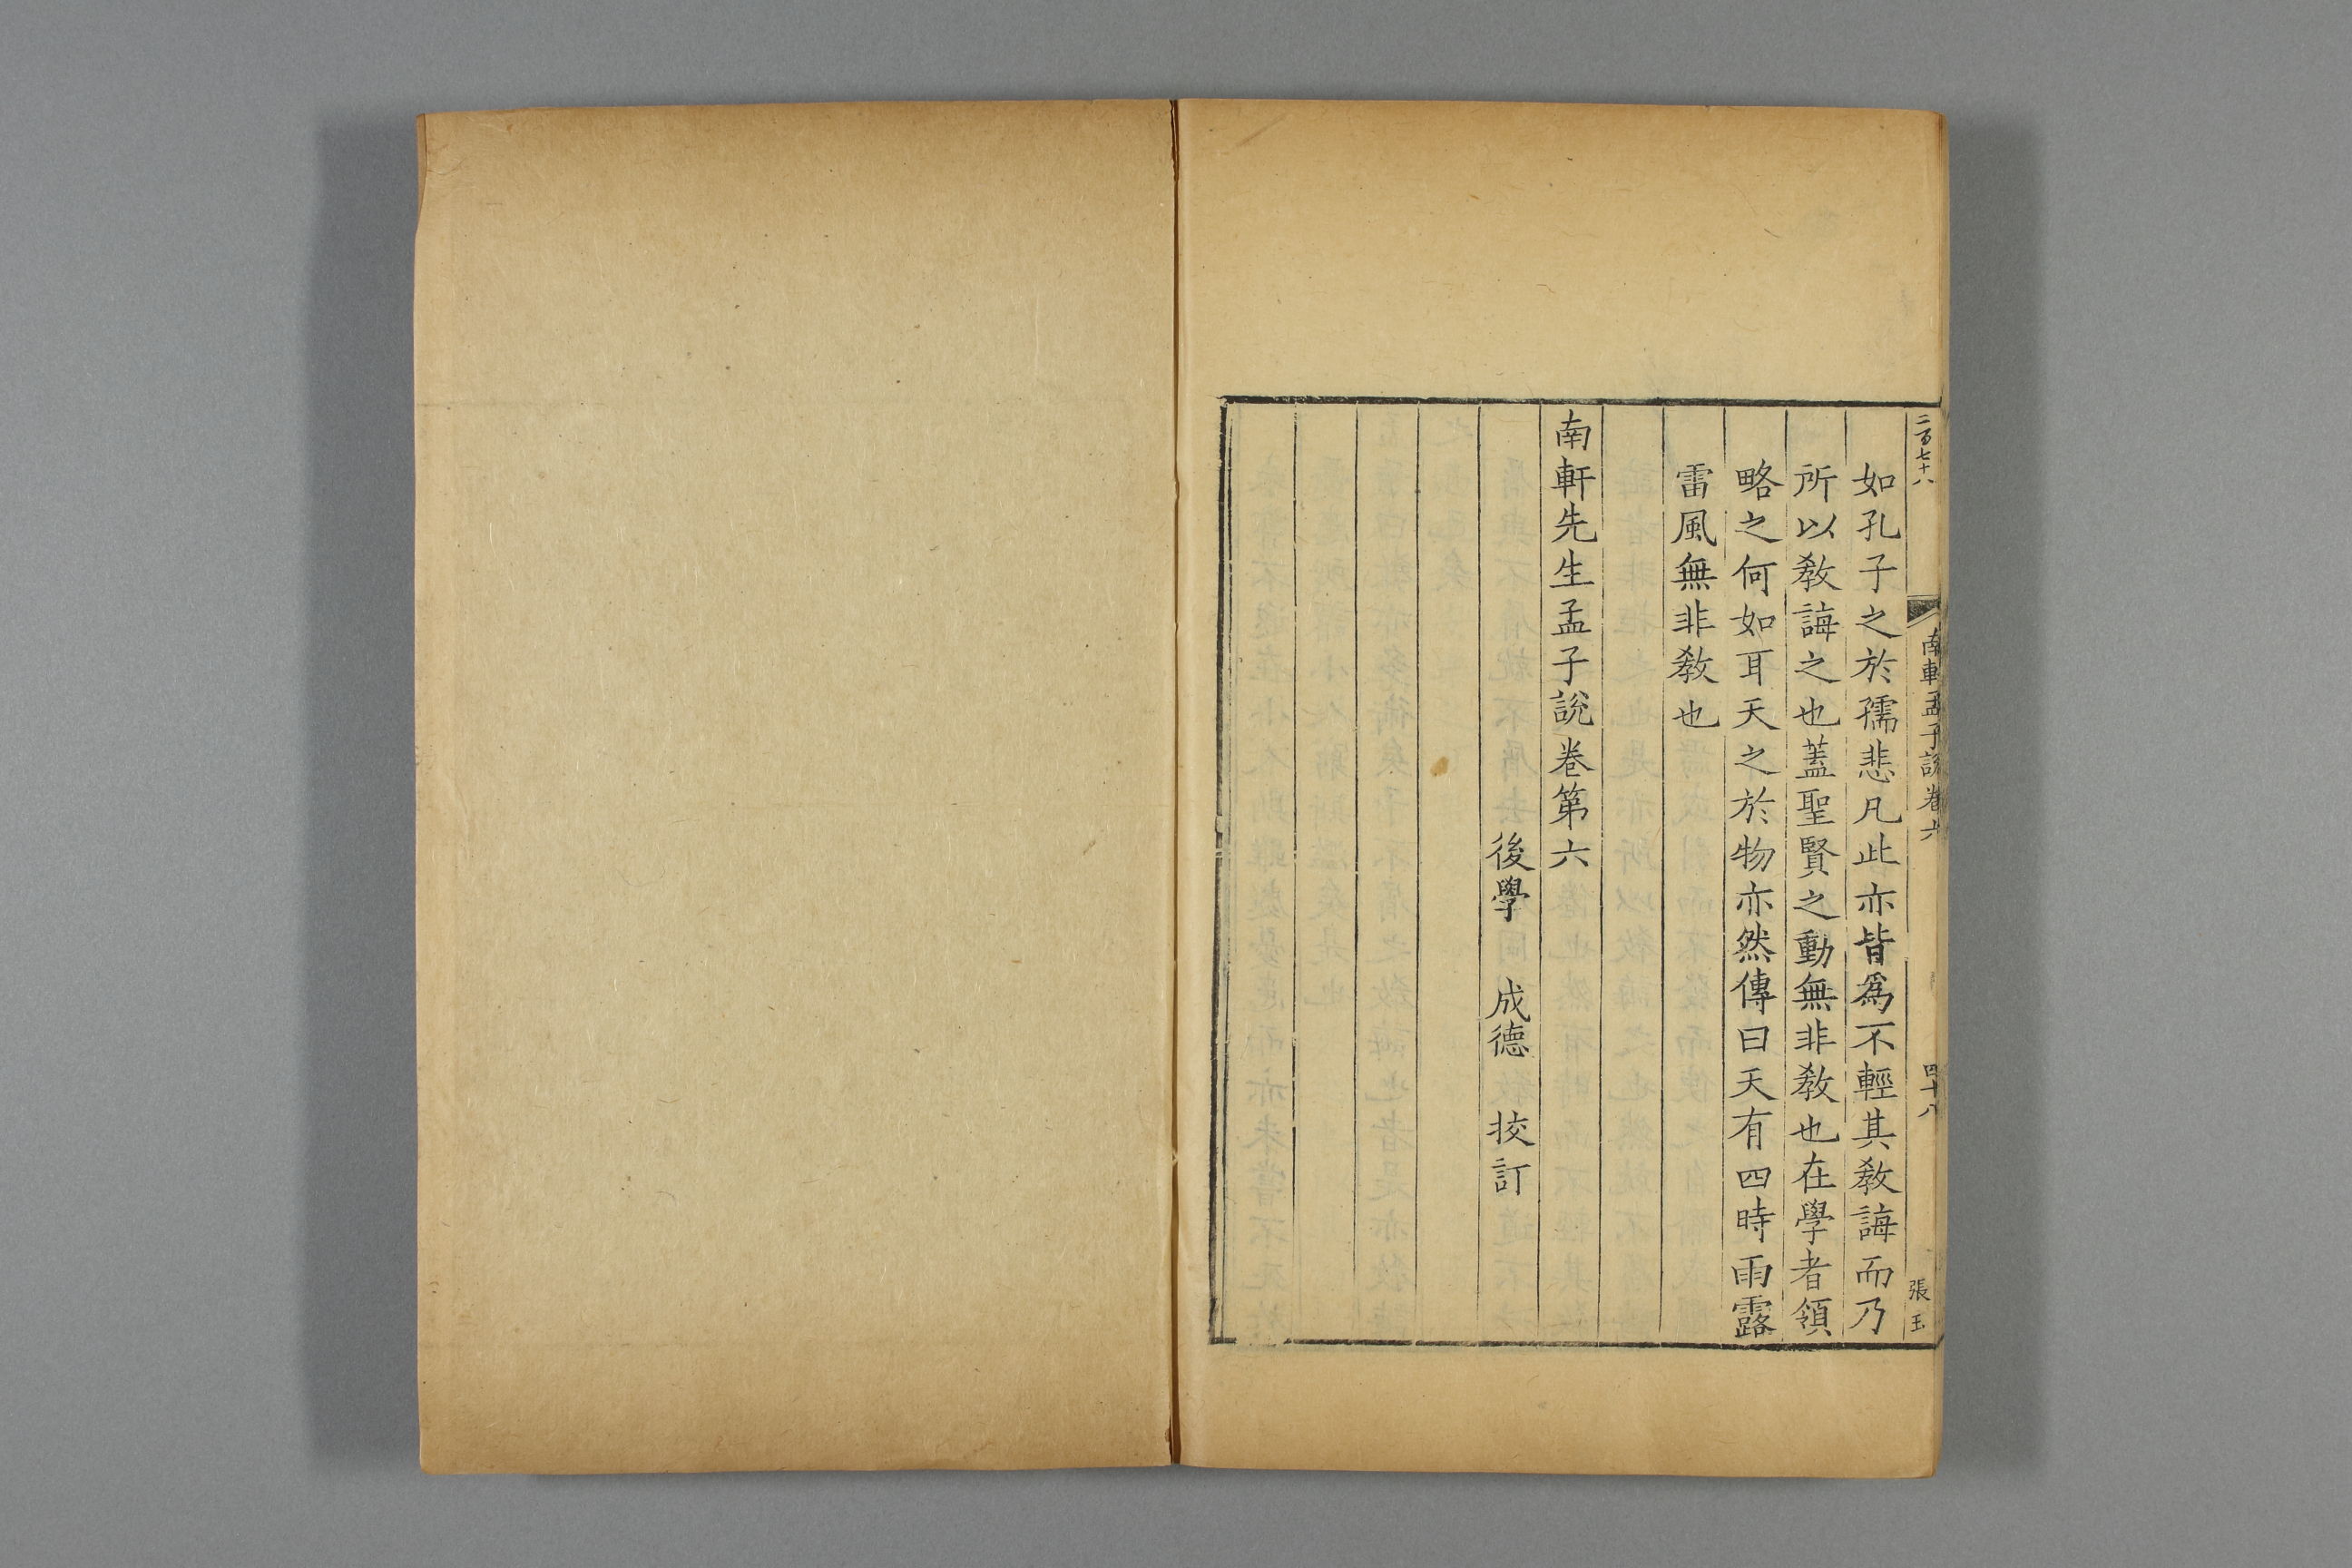 二百七十八
南軒孟子說卷六
四十八
張玉
如孔子之於孺悲凡此亦皆爲不輕其敎誨而乃
所以敎誨之也蓋聖賢之動無非敎也在學者領
略之何如耳天之於物亦然傳曰天有四時雨露
雷風無非敎也
南軒先生孟子說卷第六
後學 成德 挍訂